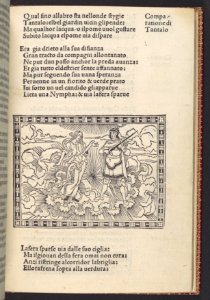 Qual sino allabro sta nellonde stygie
Tantalo: el bel giardin uicin gli pende:
Ma qualhor lacqua o el pome uuol gustare
Subito lacqua el pome uia dispare
Compa/
ratione di
Tantalo
Era gia drieto alla sua
Gran tracto da compagni allontanato
Ne pur dun passo anchor la preda auanza:
Et gia tutto el destrier sente affannato:
Ma pur seguendo sua uana speranza
Peruenne in un fiorito & uerde prato
Iui sotto un uel candido gli apparue
Lieta una Nympha: & uia la fera sparue
La fera sparse uia dalle suo ciglia:
Ma il giouan della fera omai non cura:
Anzi ristringe al corridor la briglia:
Et lo raffrena sopra alla uerdura: